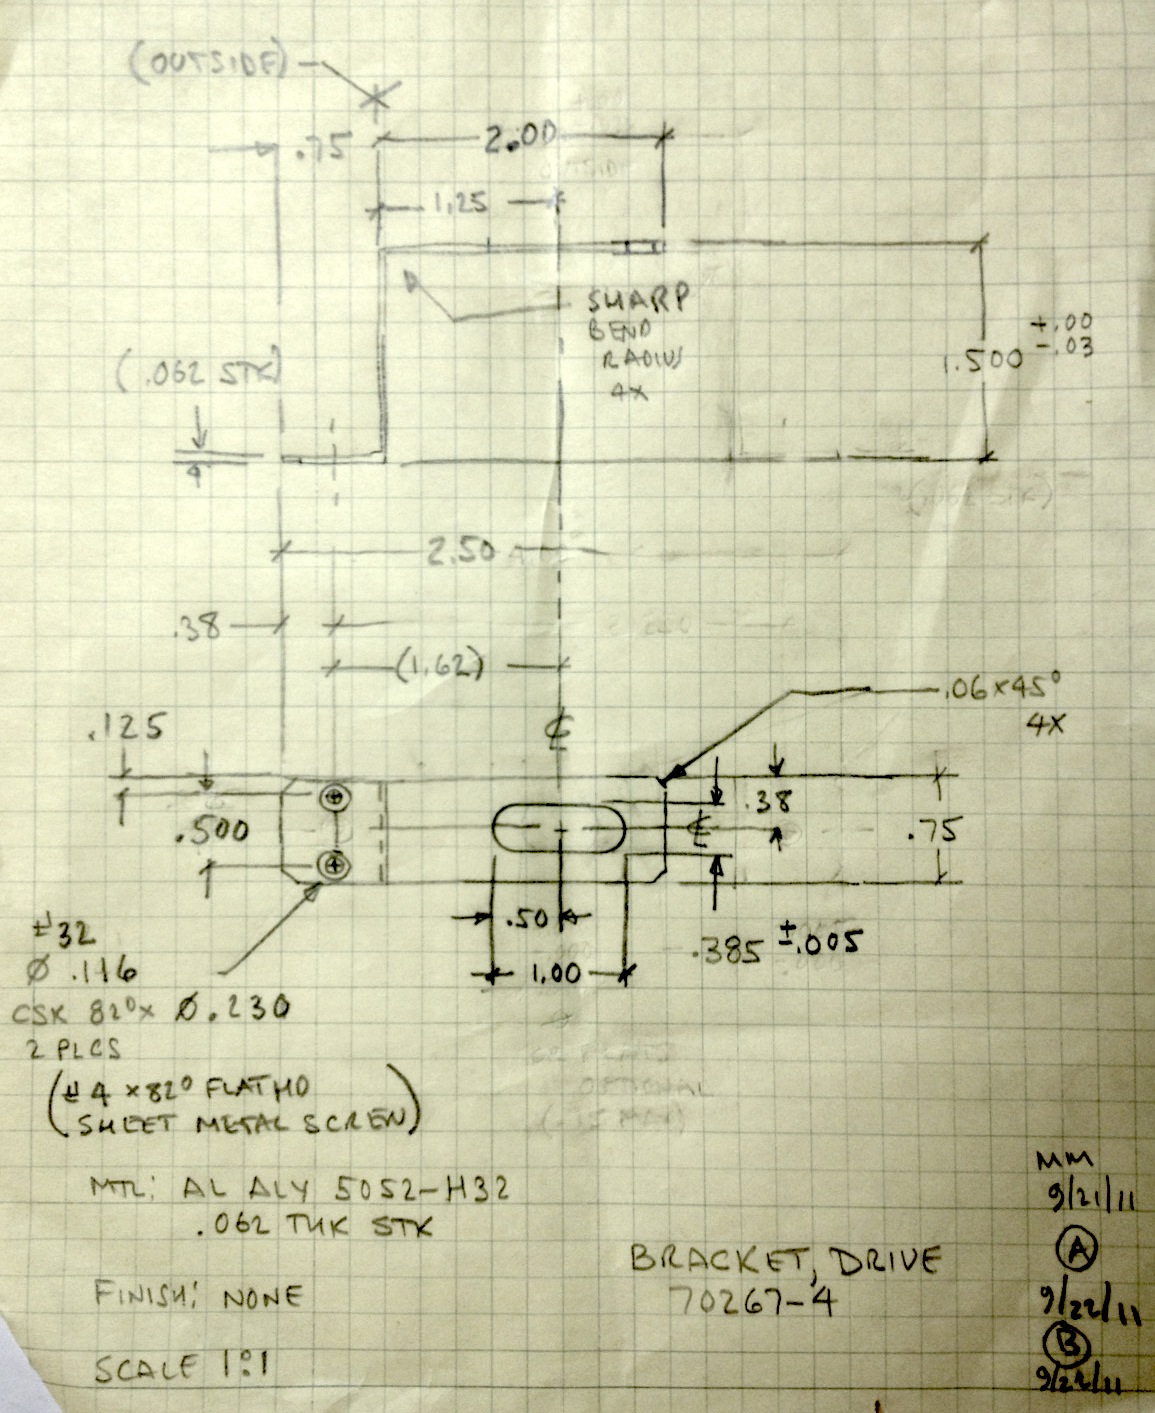 (OUTSIDE)
.75
2.00
1.25
SHARP
BEND
RADIUS
4X
+.00
-.03
1.500
(.062 STK)
2.50
.38
(1.62)
.06 X 45°
4X
.125
℄
.38
.500
℄
.75
.50
.385 ±.005
1.00
#32
Ø .116
CSK 82° X Ø.230
2 PLCS
(#4 X 82° FLAT HD
SHEET METAL SCREW)
OPTIONAL
MTL: AL ALY 5052-H32
.062 THK STK
FINISH: NONE
SCALE 1:1
BRACKET, DRIVE
70267-4
MM
9/21/11
A
9/22/11
B
9/22/11